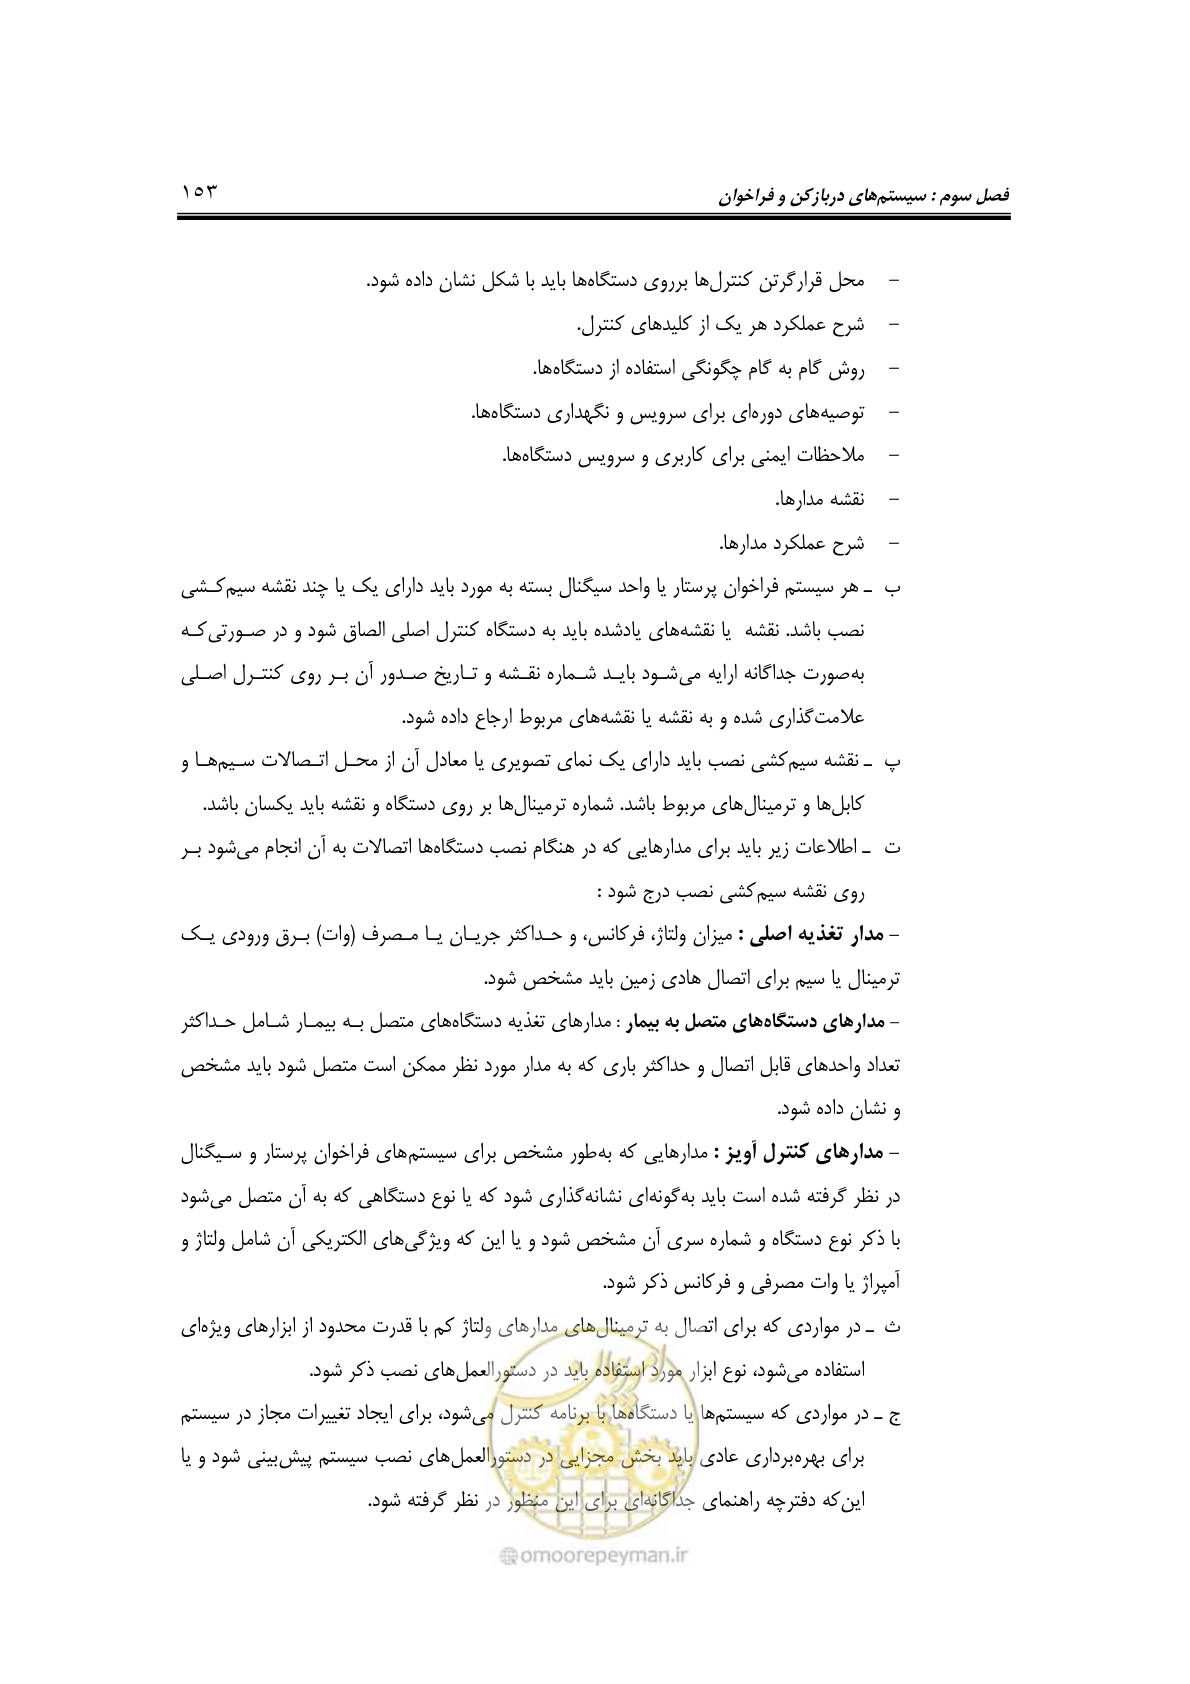 فصل سوم : سیستم‌های دربازکن و فراخوان ۱۵۳
- محل قرارگرتن کنترل‌ها برروی دستگاه‌ها باید با شکل نشان داده شود.
- شرح عملکرد هر یک از کلیدهای کنترل.
- روش گام به گام چگونگی استفاده از دستگاه‌ها.
- توصیه‌های دوره‌ای برای سرویس و نگهداری دستگاه‌ها.
- ملاحظات ایمنی برای کاربری و سرویس دستگاه‌ها.
- نقشه مدارها.
- شرح عملکرد مدارها.
ب ـ هر سیستم فراخوان پرستار یا واحد سیگنال بسته به مورد باید دارای یک یا چند نقشه سیم‌کـشی
نصب باشد. نقشه یا نقشه‌های یادشده باید به دستگاه کنترل اصلی الصاق شود و در صـورتی‌کـه
به‌صورت جداگانه ارایه می‌شـود بایـد شـماره نقـشه و تـاریخ صـدور آن بـر روی کنتـرل اصـلی
علامت‌گذاری شده و به نقشه یا نقشه‌های مربوط ارجاع داده شود.
پ ـ نقشه سیم‌کشی نصب باید دارای یک نمای تصویری یا معادل آن از محـل اتـصالات سـیم‌هـا و
کابل‌ها و ترمینال‌های مربوط باشد. شماره ترمینال‌ها بر روی دستگاه و نقشه باید یکسان باشد.
ت ـ اطلاعات زیر باید برای مدارهایی که در هنگام نصب دستگاه‌ها اتصالات به آن انجام می‌شود بـر
روی نقشه سیم‌کشی نصب درج شود :
- مدار تغذیه اصلی : میزان ولتاژ، فرکانس، و حـداکثر جریـان یـا مـصرف (وات) بـرق ورودی یـک
ترمینال یا سیم برای اتصال هادی زمین باید مشخص شود.
- مدارهای دستگاه‌های متصل به بیمار : مدارهای تغذیه دستگاه‌های متصل بـه بیمـار شـامل حـداکثر
تعداد واحدهای قابل اتصال و حداکثر باری که به مدار مورد نظر ممکن است متصل شود باید مشخص
و نشان داده شود.
- مدارهای کنترل آویز : مدارهایی که به‌طور مشخص برای سیستم‌های فراخوان پرستار و سـیگنال
در نظر گرفته شده است باید به‌گونه‌ای نشانه‌گذاری شود که یا نوع دستگاهی که به آن متصل می‌شود
با ذکر نوع دستگاه و شماره سری آن مشخص شود و یا این که ویژگی‌های الکتریکی آن شامل ولتاژ و
آمپراژ یا وات مصرفی و فرکانس ذکر شود.
ث ـ در مواردی که برای اتصال به ترمینال‌های مدارهای ولتاژ کم با قدرت محدود از ابزارهای ویژه‌ای
استفاده می‌شود، نوع ابزار مورد استفاده باید در دستورالعمل‌های نصب ذکر شود.
ج ـ در مواردی که سیستم‌ها یا دستگاه‌ها با برنامه کنترل می‌شود، برای ایجاد تغییرات مجاز در سیستم
برای بهره‌برداری عادی باید بخش مجزایی در دستورالعمل‌های نصب سیستم پیش‌بینی شود و یا
این‌که دفترچه راهنمای جداگانه‌ای برای این منظور در نظر گرفته شود.
امور پیمان
@omoorepeyman.ir